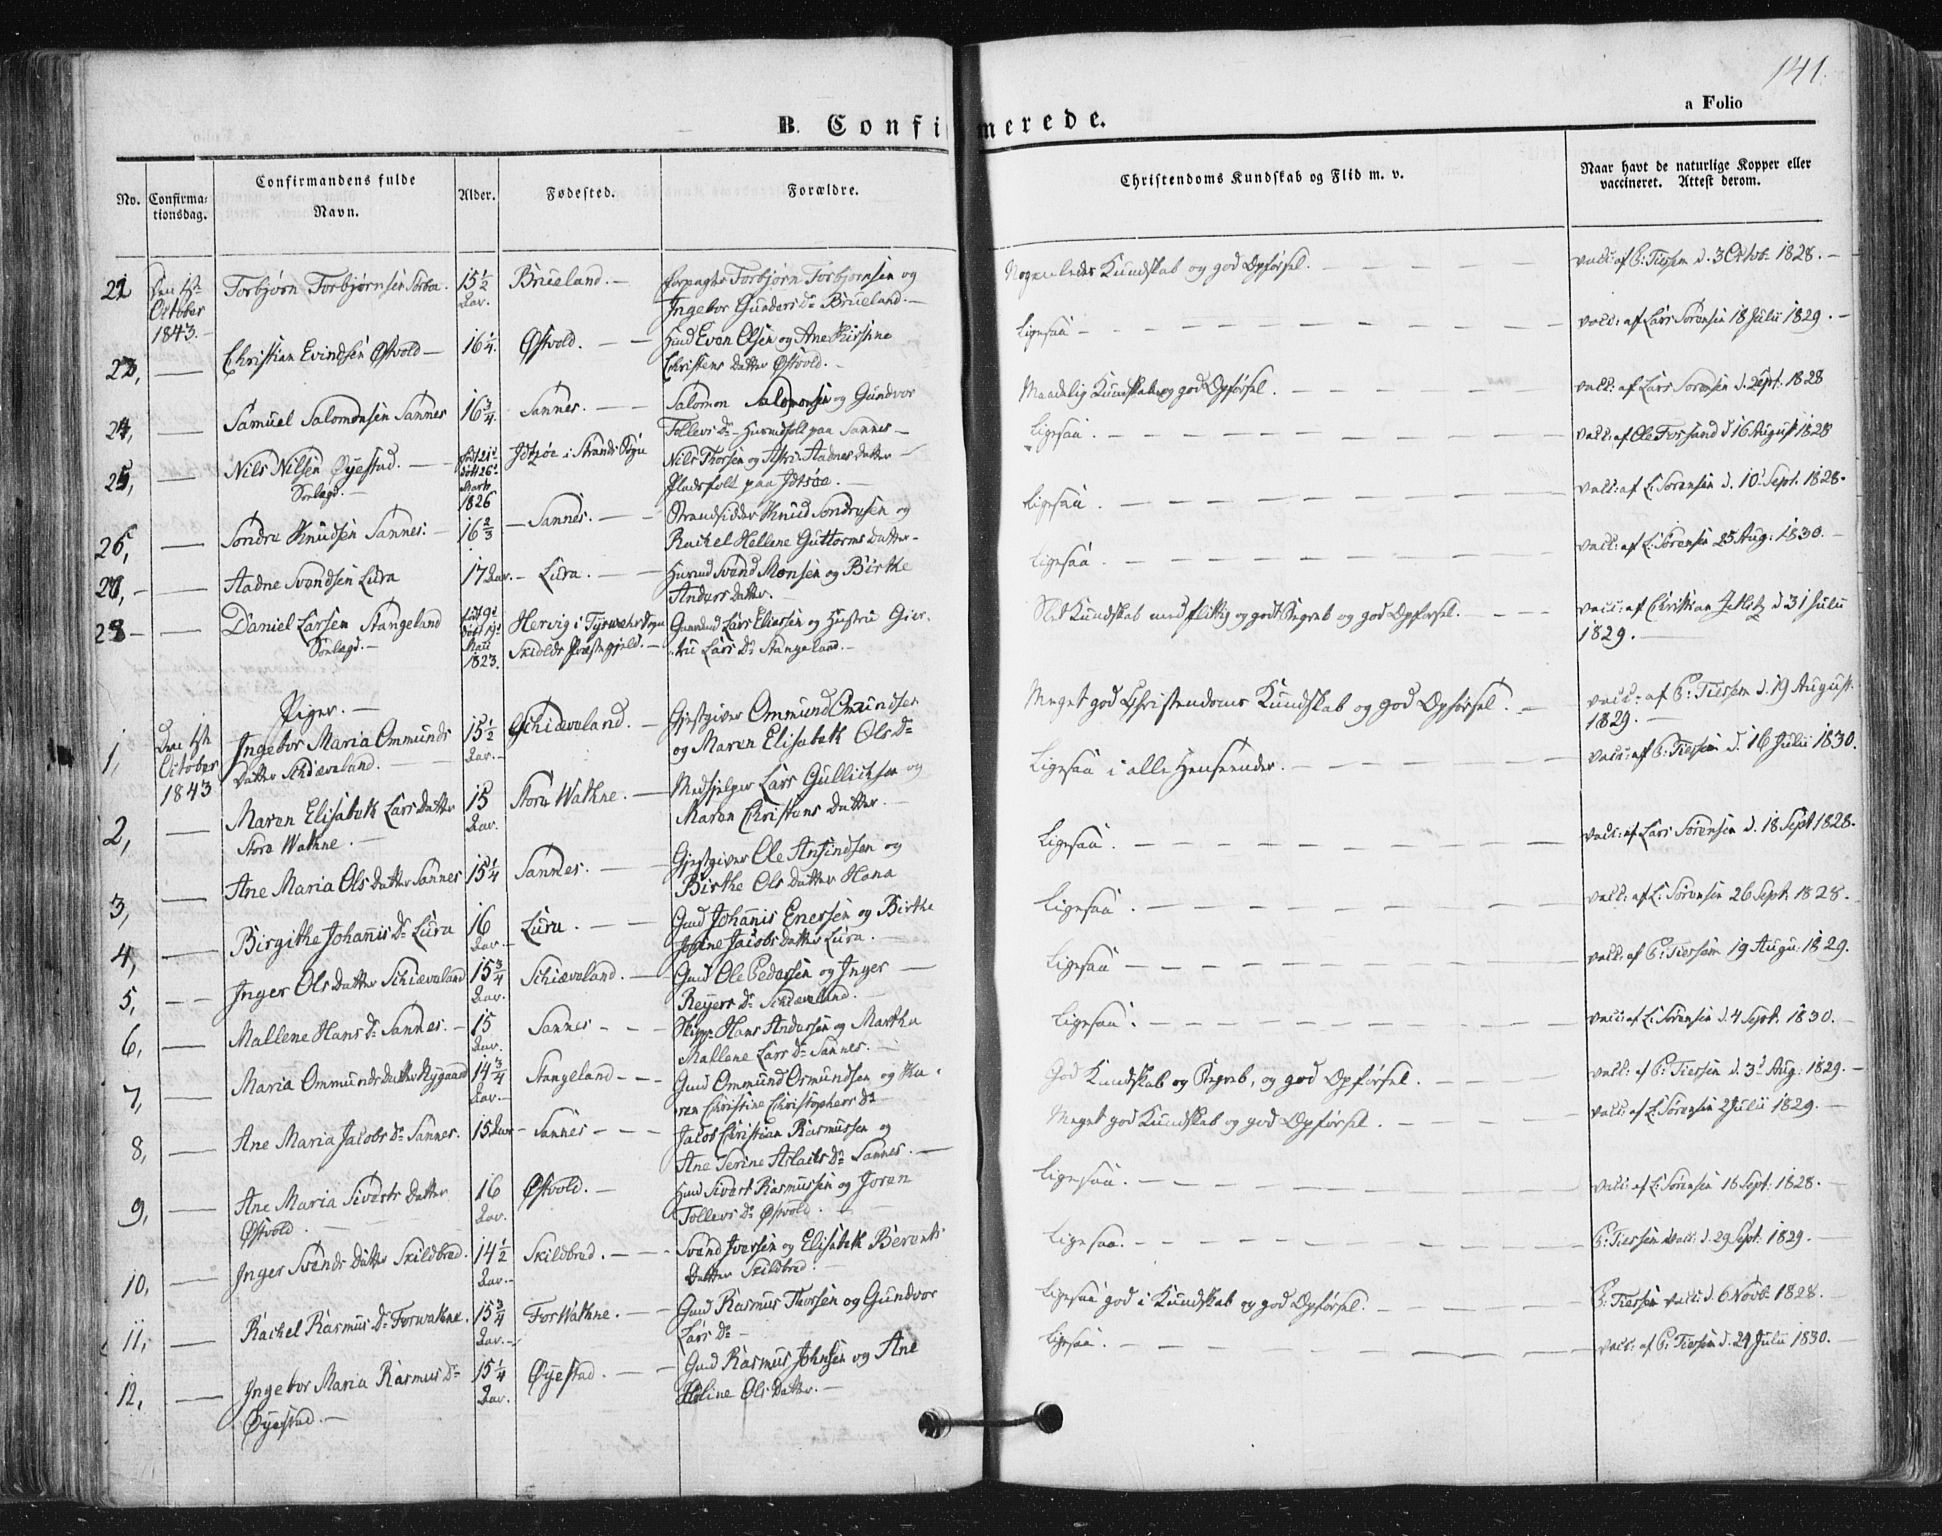 141.
a Folio
B. Confirmerede.
No.
Confirma-
tionsdag.
Confirmandens fulde
Navn.
Alder.
Fødested.
Forældre.
Christendoms Kundskab og Flid m. v.
Naar havt de naturlige Kopper eller
vaccineret. Attest derom.
Den 1ste
October
1843.
Torbjørn Torbjørnsen
15 1/2
Aar.
Brueland.
Forpagter Torbjørn Torbjørnsen og
Ingebor Gunders Dr Brueland.
Nogenledes Kundskab og god Opførsel.
vacc: af P: Tiersen d. 3 Octob: 1828.
Christian Evindsen Østvold
16 1/4.
Østvold.
Huusmd Even Olsen og Ane Kirstine
Christens Datter Østvold.
Ligesaa
vacc: af Lars Sørensen 18 Julii 1829.
24,
Samuel Salomonsen Sannes
16 3/4.
Sannes.
Salomon Salomonsen og Gundvor
Tollevs Dr Huusmdfolk paa Sannes
Maadelig Kundskab og god Opførsel.
vacc: af Lars Sørensen d. Sept. 1828
25,
Nils Nilsen Øyestad.
1826
i Strands Sogn
Nils Thorsen og Aadnes Datter
Pladsfolk paa
Ligesaa.
vacc: af Ole Forsand d 16 August 1828
26,
Sondre Knudsen Sannes.
16 2/3
Sannes.
Strandsidder Knud Sondresen og
Rachel Hellene Guttorms Datter
Ligesaa.
vacc: af L: Sørensen d. 10 Sept. 1828.
Aadne Svendsen Lura
17 Aar.
Lura.
Huusmd Svend Monsen og Birthe
Anders Datter.
Ligesaa.
vacc: af L: Sørensen 25 Aug: 1830.
28
Daniel Larsen Stangeland
1823.
Hervig i Tysvær Sogn
Skiolds Præstegjeld.
Gaardmd Lars Eliassen og Hustru Gier-
tru Lars Dr Stangeland.
Slet Kundskab men flittig og god Opførsel.
vacc: af Christian d 31 Julii
1829.
Piger.
1,
Den 1ste
October
1843
Ingebor Maria Ommunds
Datter Schiæveland.
15 1/2
Aar.
Schiæveland.
Gjestgiver Ommund Omundsen
og Maren Elisabeth Ols Dr
Meget god Christendoms Kundskab og god Opførsel.
vacc: af P: Tiersen d. 19 August.
1829.
2,
Maren Elisabeth Lars Datter
Store Wathne.
15
Aar.
Store Wathne.
Medhjelper Lars Gullichsen og
Maren Christens Datter.
Ligesaa i alle Henseender.
vacc: af P: Tiersen d. 16 Julii 1830.
3,
Ane Maria Ols Datter Sannes
15 1/4
Sannes.
Gjestgiver Ole Ansindsen og
Birthe Ols Datter Hana
Ligesaa.
vacc: af Lars Sørensen d. 18 Sept 1828.
4,
Birgithe Johannis Dr Lura
16
Aar.
Lura.
Gmd Johannis Enersen og Birthe
Jacobs Datter Lura.
Ligesaa.
vacc: af L: Sørensen 26 Sept. 1828.
5,
Inger Ols Datter Schiæveland
15 3/4
Aar.
Schiæveland.
Gmd Ole Pedersen og Inger
Reyers Dr Schiæveland.
Ligesaa
vacc: af P: Tiersen 19 Augu: 1829.
6,
Mallene Hans Dr Sannes.
15
Aar.
Sannes
Skipp: Hans Andersen og Martha
Mallene Lars Dr Sannes.
Ligesaa.
vacc: af L: Sørensen d. 4 Sept. 1830.
7,
Maria Ommunds Datter Nygaard
14 3/4
Aar.
Stangeland
Gmd Ommund Osmundsen og Ka-
ren Christine Christophers Dr
God Kundskab og Begreb, og god Opførsel.
vacc: af P: Tiersen d. 3d Aug: 1829.
8,
Ane Maria Jacobs Dr Sannes.
15 Aar
Sannes
Jacob Christian Rasmussen og
Ane Serine Aslachs Dr Sannes.
Meget god Kundskab og god Opførsel.
vacc: af L: Sørensen 2 Julii 1829.
9,
Ane Maria Siverts Datter
Østvold.
16
Aar.
Østvold.
Huusmd Sivert Rasmussen og Joren
Tollevs Dr Østvold.
Ligesaa.
vacc: af L: Sørensen 18 Sept: 1828.
10,
Inger Svends Datter Skildbred.
14 1/2
Aar.
Skildbred.
Svend Iversen og Elisabeth Berents
Datter Skildbred.
Ligesaa.
P: Tiersen vacc: d. 29 Sept: 1829.
11,
Rachel Rasmus Dr Forwathne.
15 3/4
Aar.
ForWathne.
Gmd Rasmus Thorsen og Gundvor
Lars Dr
Ligesaa god i Kundskab og god Opførsel.
P: Tiersen vacc: d. 6 Novb: 1828.
12,
Ingebor Maria Rasmus Dr
Øyestad.
15 1/4
Aar.
Øyestad.
Gmd Rasmus Johnsen og Ane
Heline Ols Datter.
Ligesaa.
vacc: af P: Tiersen d. 24 Julii 1830.